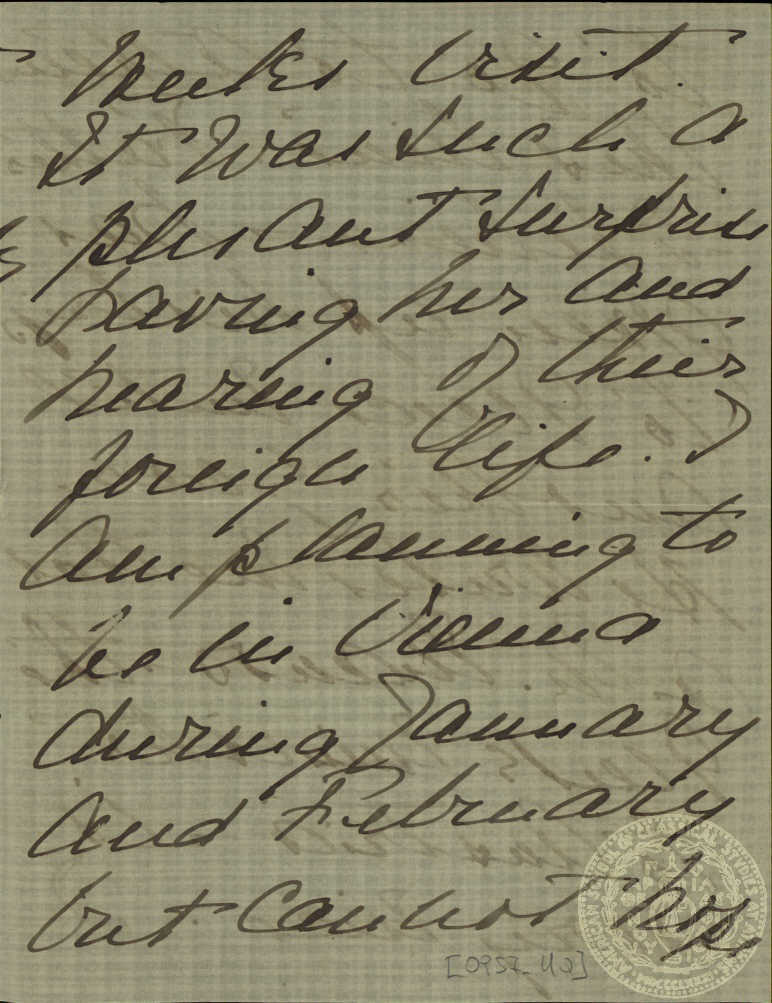 weeks visit.
It was such a
plesant surprise
having her and
hearing of their
foreign life. I
am planning to
be in Vienna
during January
and February
but cannot hope
[0957_U2]